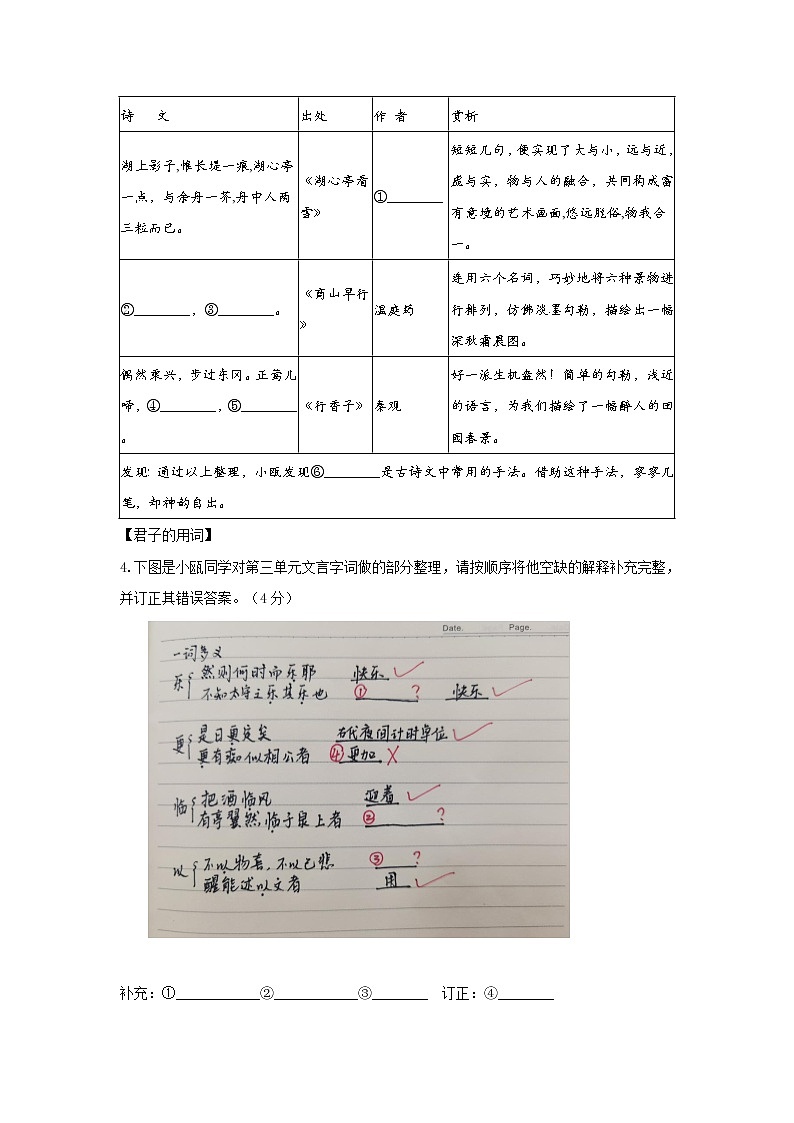 诗 文 出处 作 者 赏析
湖上影子,惟长堤一痕,湖心亭
一点，与余舟一芥,舟中人两
三粒而已。
《湖心亭看
雪》
①________
短短几句，便实现了大与小，远与近，
虚与实，物与人的融合，共同构成富
有意境的艺术画面,悠远脱俗,物我合
一。
②________，③________。
《商山早行
》
温庭筠
连用六个名词，巧妙地将六种景物进
行排列，仿佛淡墨勾勒，描绘出一幅
深秋霜晨图。
偶然乘兴，步过东冈。正莺儿
啼，④________，⑤________
。
《行香子》
秦观
好一派生机盎然！简单的勾勒，浅近
的语言，为我们描绘了一幅醉人的田
园春景。
发现: 通过以上整理，小瓯发现⑥________是古诗文中常用的手法。借助这种手法，寥寥几
笔，却神韵自出。
【君子的用词】
4.下图是小瓯同学对第三单元文言字词做的部分整理，请按顺序将他空缺的解释补充完整，
并订正其错误答案。（4分）
Date. Page.
一词多义
乐 然则何时而乐耶 快乐
不知太守之乐其乐也 ① ? 快乐
更 是日更定矣 古代夜间计时单位
更有痴似相公者 ④更加
临 把酒临风 迎着
有亭翼然,临于泉上者 ② ?
以 不以物喜，不以己悲 ③ ?
醒能述以文者 用
补充：①____________②____________③________ 订正：④________